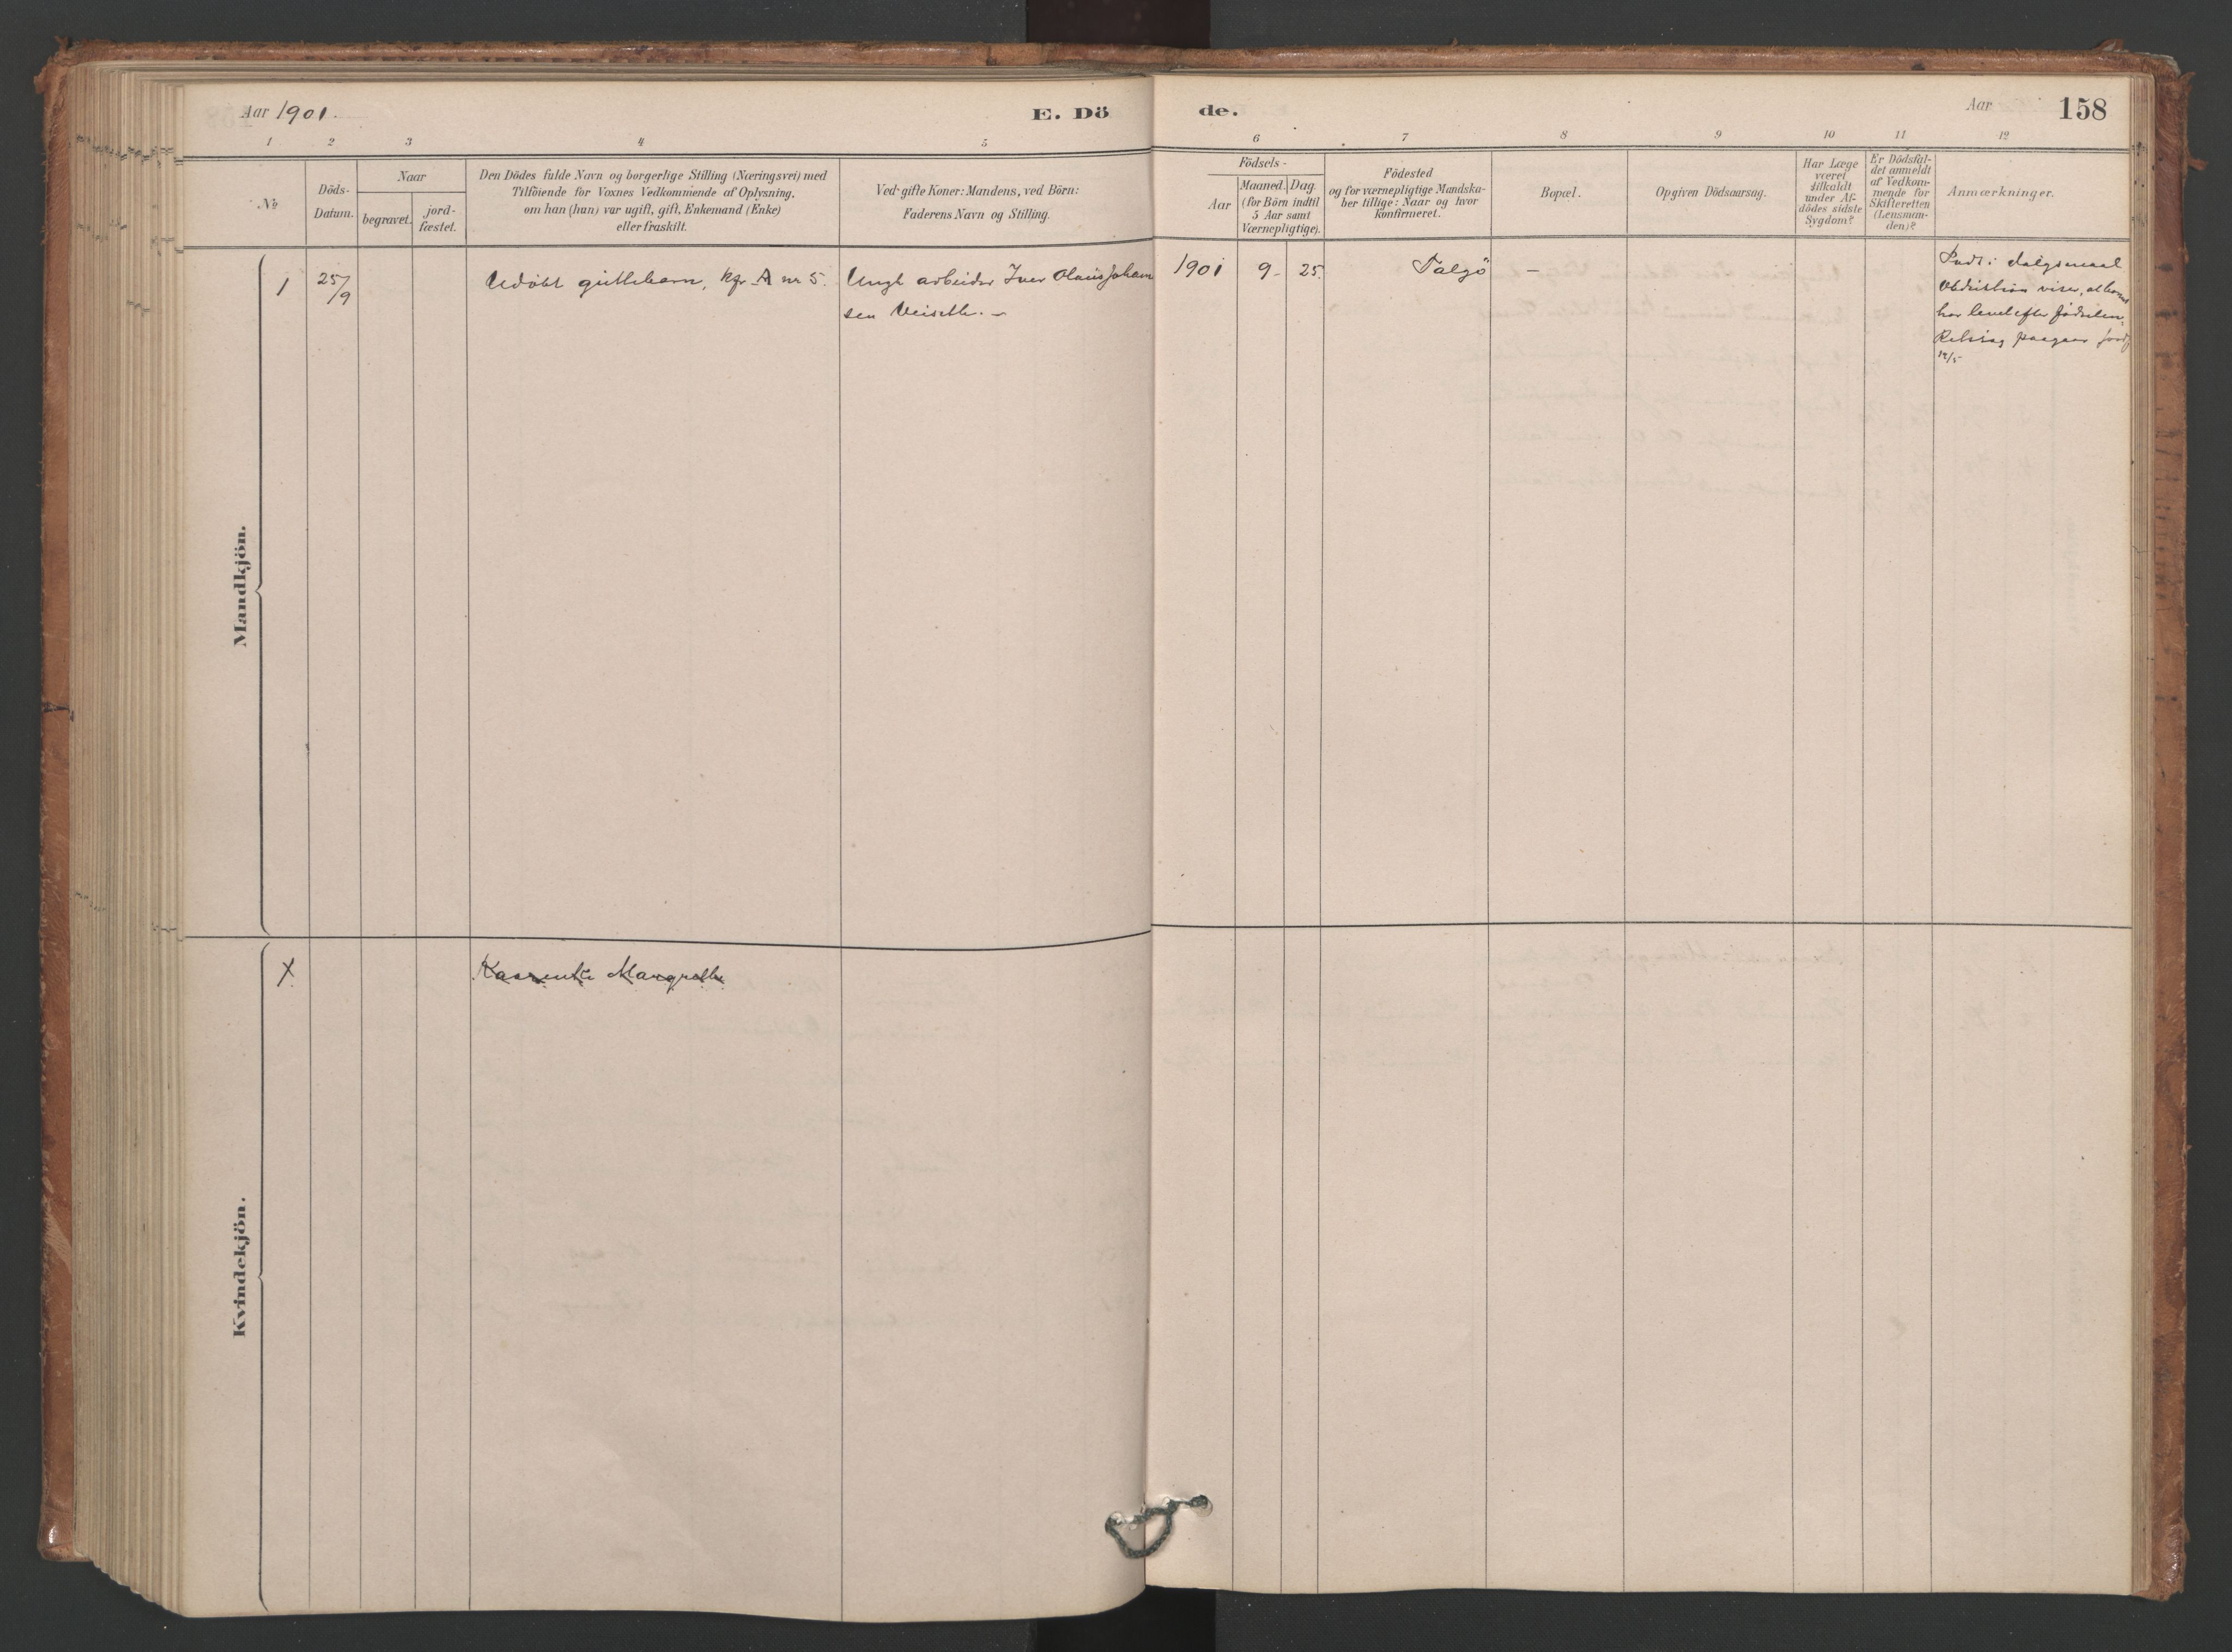 Aar 1901.
E. Dö
de.
Aar
158
1 2 3 4 5 6 7 8 9 10 11 12
No
Döds-
Datum.
Naar
begravet.
jord-
fæstet.
Den Dödes fulde Navn og borgerlige Stilling (Næringsvei) med
Tilföiende for Voxnes Vedkommende af Oplysning,
om han (hun) var ugift, gift, Enkemand (Enke)
eller fraskilt.
Ved gifte Koner: Mandens, ved Börn:
Faderens Navn og Stilling.
Födsels-
Aar
Maaned. Dag.
(for Börn indtil
5 Aar samt
Værnepligtige).
Födested
og for værnepligtige Mandska-
ber tillige: Naar og hvor
konfirmeret.
Bopæl.
Opgiven Dödsaarsag.
Har Læge
været
tilkaldt
under Af-
dödes sidste
Sygdom?
Er Dödsfal-
det anmeldt
af Vedkom-
mende for
Skifteretten
(Lensman-
den)?
Anmærkninger.
Mandkjön.
1 25/9 Udöbt guttebarn, kfr. A nr 5. Ungk arbeider Iver Olaus Johan
sen Veiseth. –
1901 9. 25. Talgö –
Födt i dølgsmaal
Obduktion viser, at barnet
har levet efter fødselen.
Retssag paagaar
12/5
Kvindekjön.
X Kaarenti Margrethe